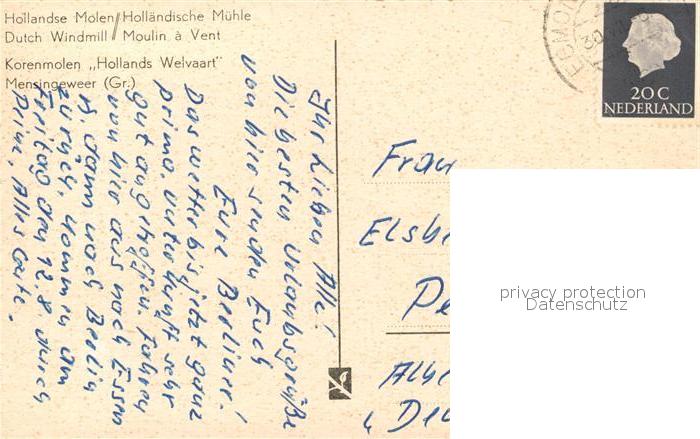 Hollandse Molen / Holländische Mühle
Dutch Windmill / Moulin à Vent
Korenmolen „Hollands Welvaart"
Mensingeweer (Gr.)
20 C
NEDERLAND
Ihr Lieben Alle!
Die besten Urlaubsgrüße
von hier senden Euch
Eure Berliner!
Das Wetter bis jetzt ganz
prima, Unterkunft sehr
gut angetroffen. Fahren
von hier aus nach Essen
dann nach Berlin
zurück, kommen am
Freitag den 12.8. durch
Alles Gute.
Frau
Elsb
Pe
privacy protection
Datenschutz